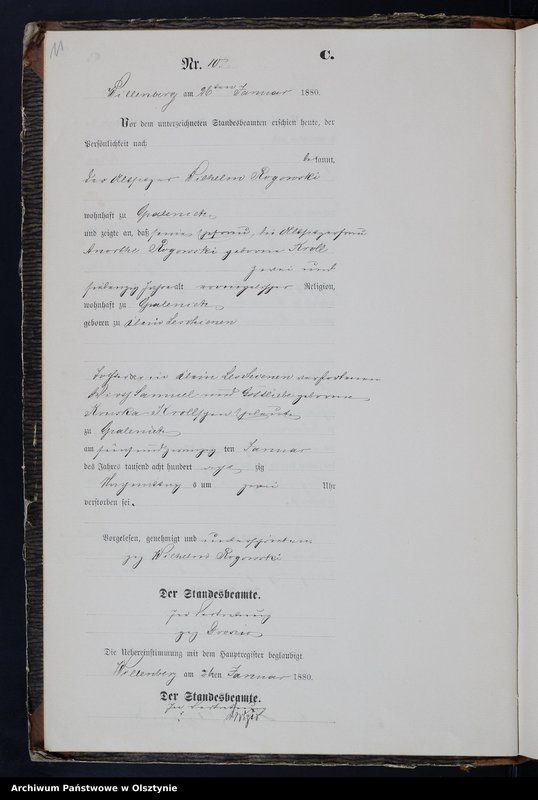 11
C.
Nr. 10
Willenberg am 26ten Januar 1880.
Vor dem unterzeichneten Standesbeamten erschien heute, der
Persönlichkeit nach
bekannt,
der Altsitzer Wilhelm Rogowski
wohnhaft zu Opalenietz
und zeigte an, daß seine Ehefrau, die Altsitzerfrau
Rogowski geborne Kroll
zwei und
siebenzig Jahre alt evangelischer Religion,
wohnhaft zu Opalenietz
geboren zu Klein Leschienen
Tochter der in Klein Leschienen verstorbenen
Wirth Samuel und Gottliebe geborne
Krollschen Eheleute
zu Opalenietz
am fünfundzwanzigten Januar
des Jahres tausend acht hundert achtzig
Nachmittags um zwei Uhr
verstorben sei.
Vorgelesen, genehmigt und unterschrieben
gez Wilhelm Rogowski
Der Standesbeamte.
In Vertretung
gez
Die Uebereinstimmung mit dem Hauptregister beglaubigt
Willenberg am 26ten Januar 1880.
Der Standesbeamte.
In Vertretung
Archiwum Państwowe w Olsztynie